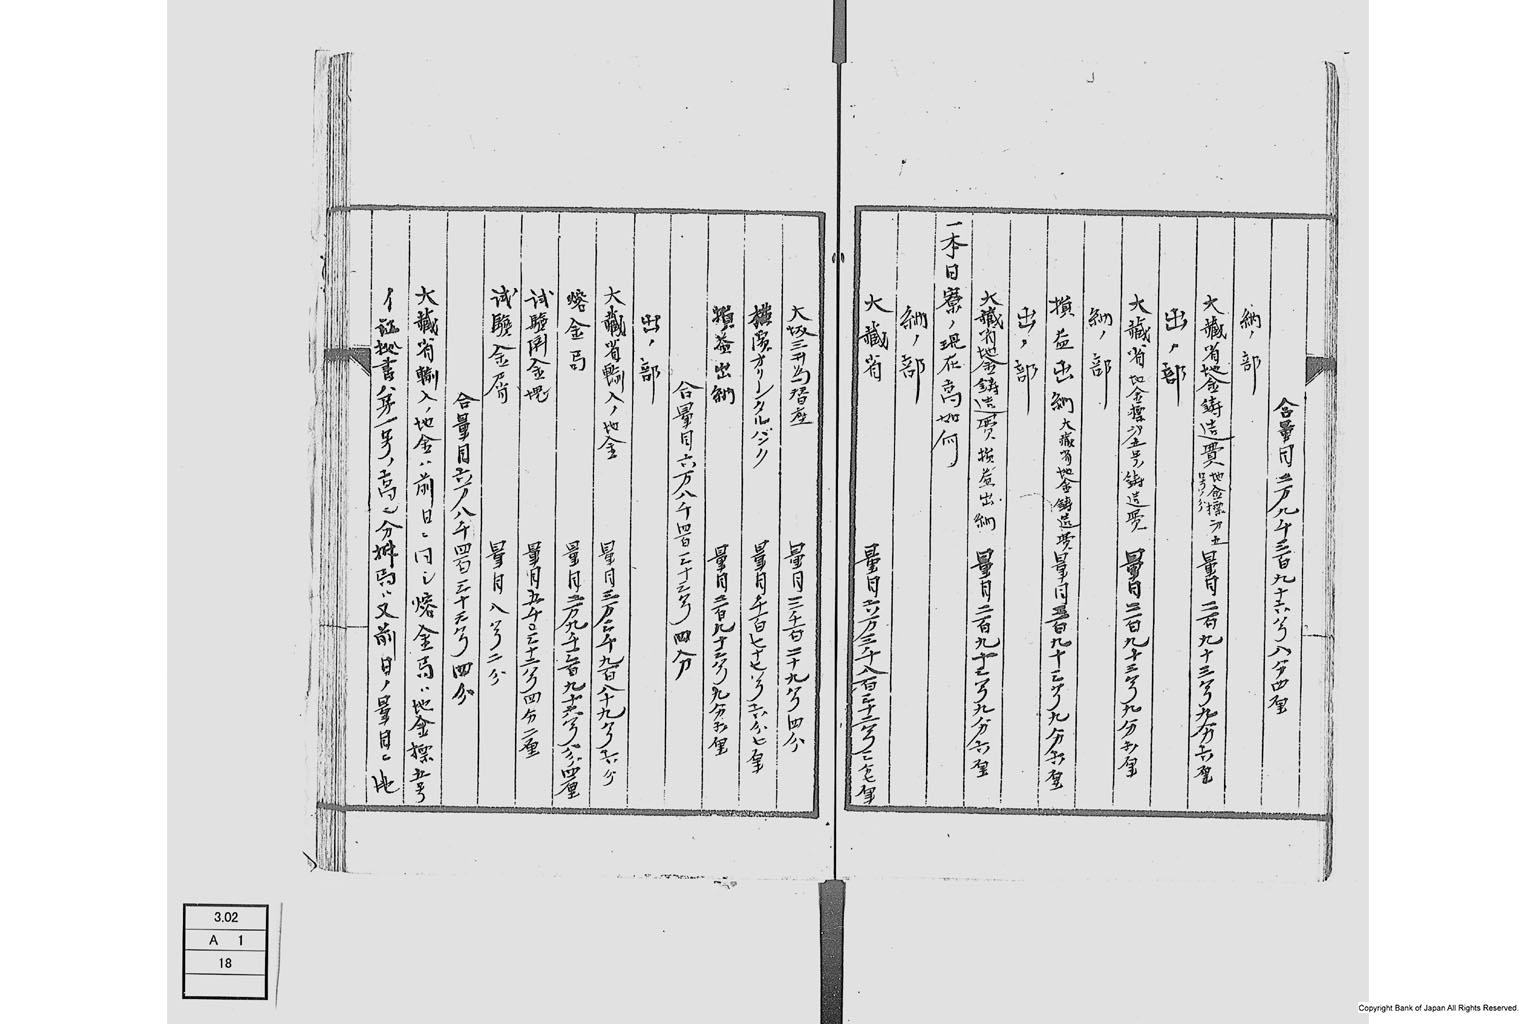 合量目三万九千三百九十六匁八分四厘
納ノ部
大蔵省地金鋳造費地金標二分五号ノ分量目二百九十三匁九分六厘
出ノ部
大蔵省地金標二分五号鋳造費 量目二百九十三匁九分六厘
納ノ部
損益出納大蔵省地金鋳造費量目二百九十三匁九分六厘
出ノ部
大蔵省地金鋳造費損益出納 量目二百九十三匁九分六厘
一本日寮ノ現在高如何
納ノ部
大蔵省 量目六万三千八百三十二匁三分七厘
大坂三井為替座 量目三千百二十九匁四分
横濱オリーンタルバンク 量目千百七十七匁六分七厘
損益出納 量目二百九十三匁九分六厘
合量目六万八千四百三十三匁四分
出ノ部
大蔵省輸入ノ地金 量目三万三千九百八十九匁六分
熔金局 量目二万九千三百九十六匁八分四厘
試驗済金塊 量目五千〇三十二匁四分二厘
試驗金屑 量目八匁二分
合量目六万八千四百三十三匁四分
大蔵省輸入ノ地金ハ前日ニ同シ熔金局ハ地金標五号
イ証拠書八第一号ノ高ニ分拆局ハ又前日ノ量目ニ此
3.02
A 1
18
Copyright Bank of Japan All Rights Reserved.